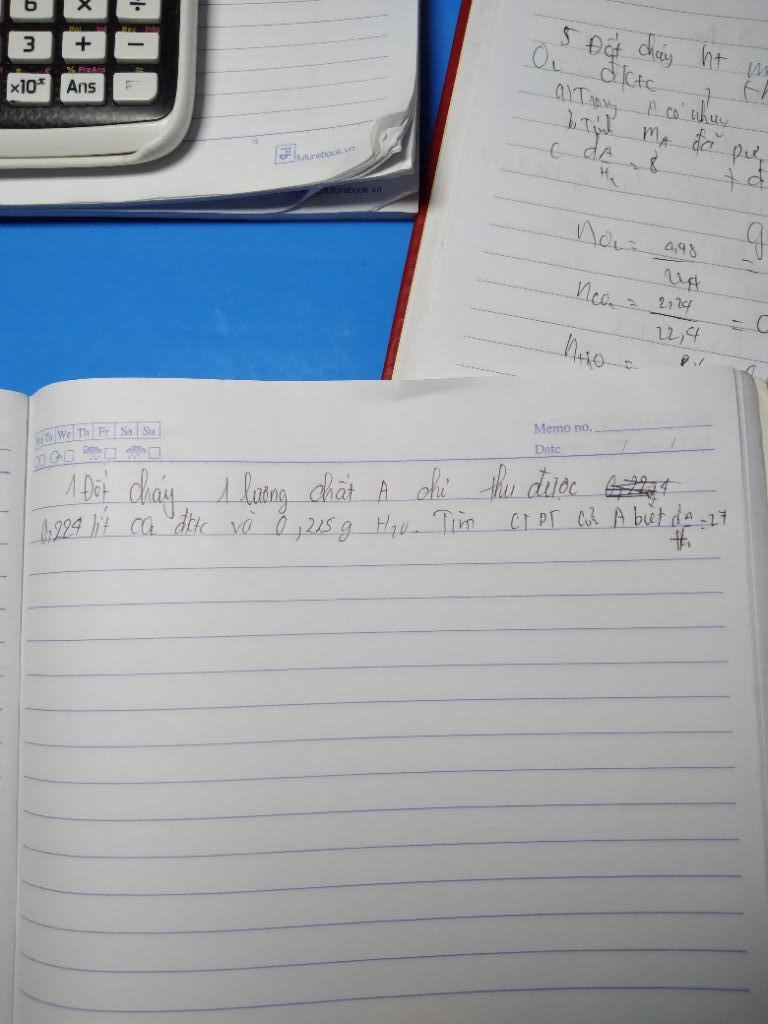 6 × ÷
3 + −
×10ˣ Ans
futurebook.vn
futurebook.vn
5 Đốt cháy ht
O₂ đktc
a) Trong A có
b Tính mA đã
c dA/H₂ = 8
nO₂ = 4,48/22,4 =
nCO₂ = 2,24/22,4 = 0
nH₂O =
Tu We Th Fr Sa Su
Memo no.
Date / /
1 Đốt cháy 1 lượng chất A chỉ thu được
0,224 lít CO₂ đktc và 0,225g H₂O. Tìm CTPT của A biết dA/H₂ = 27